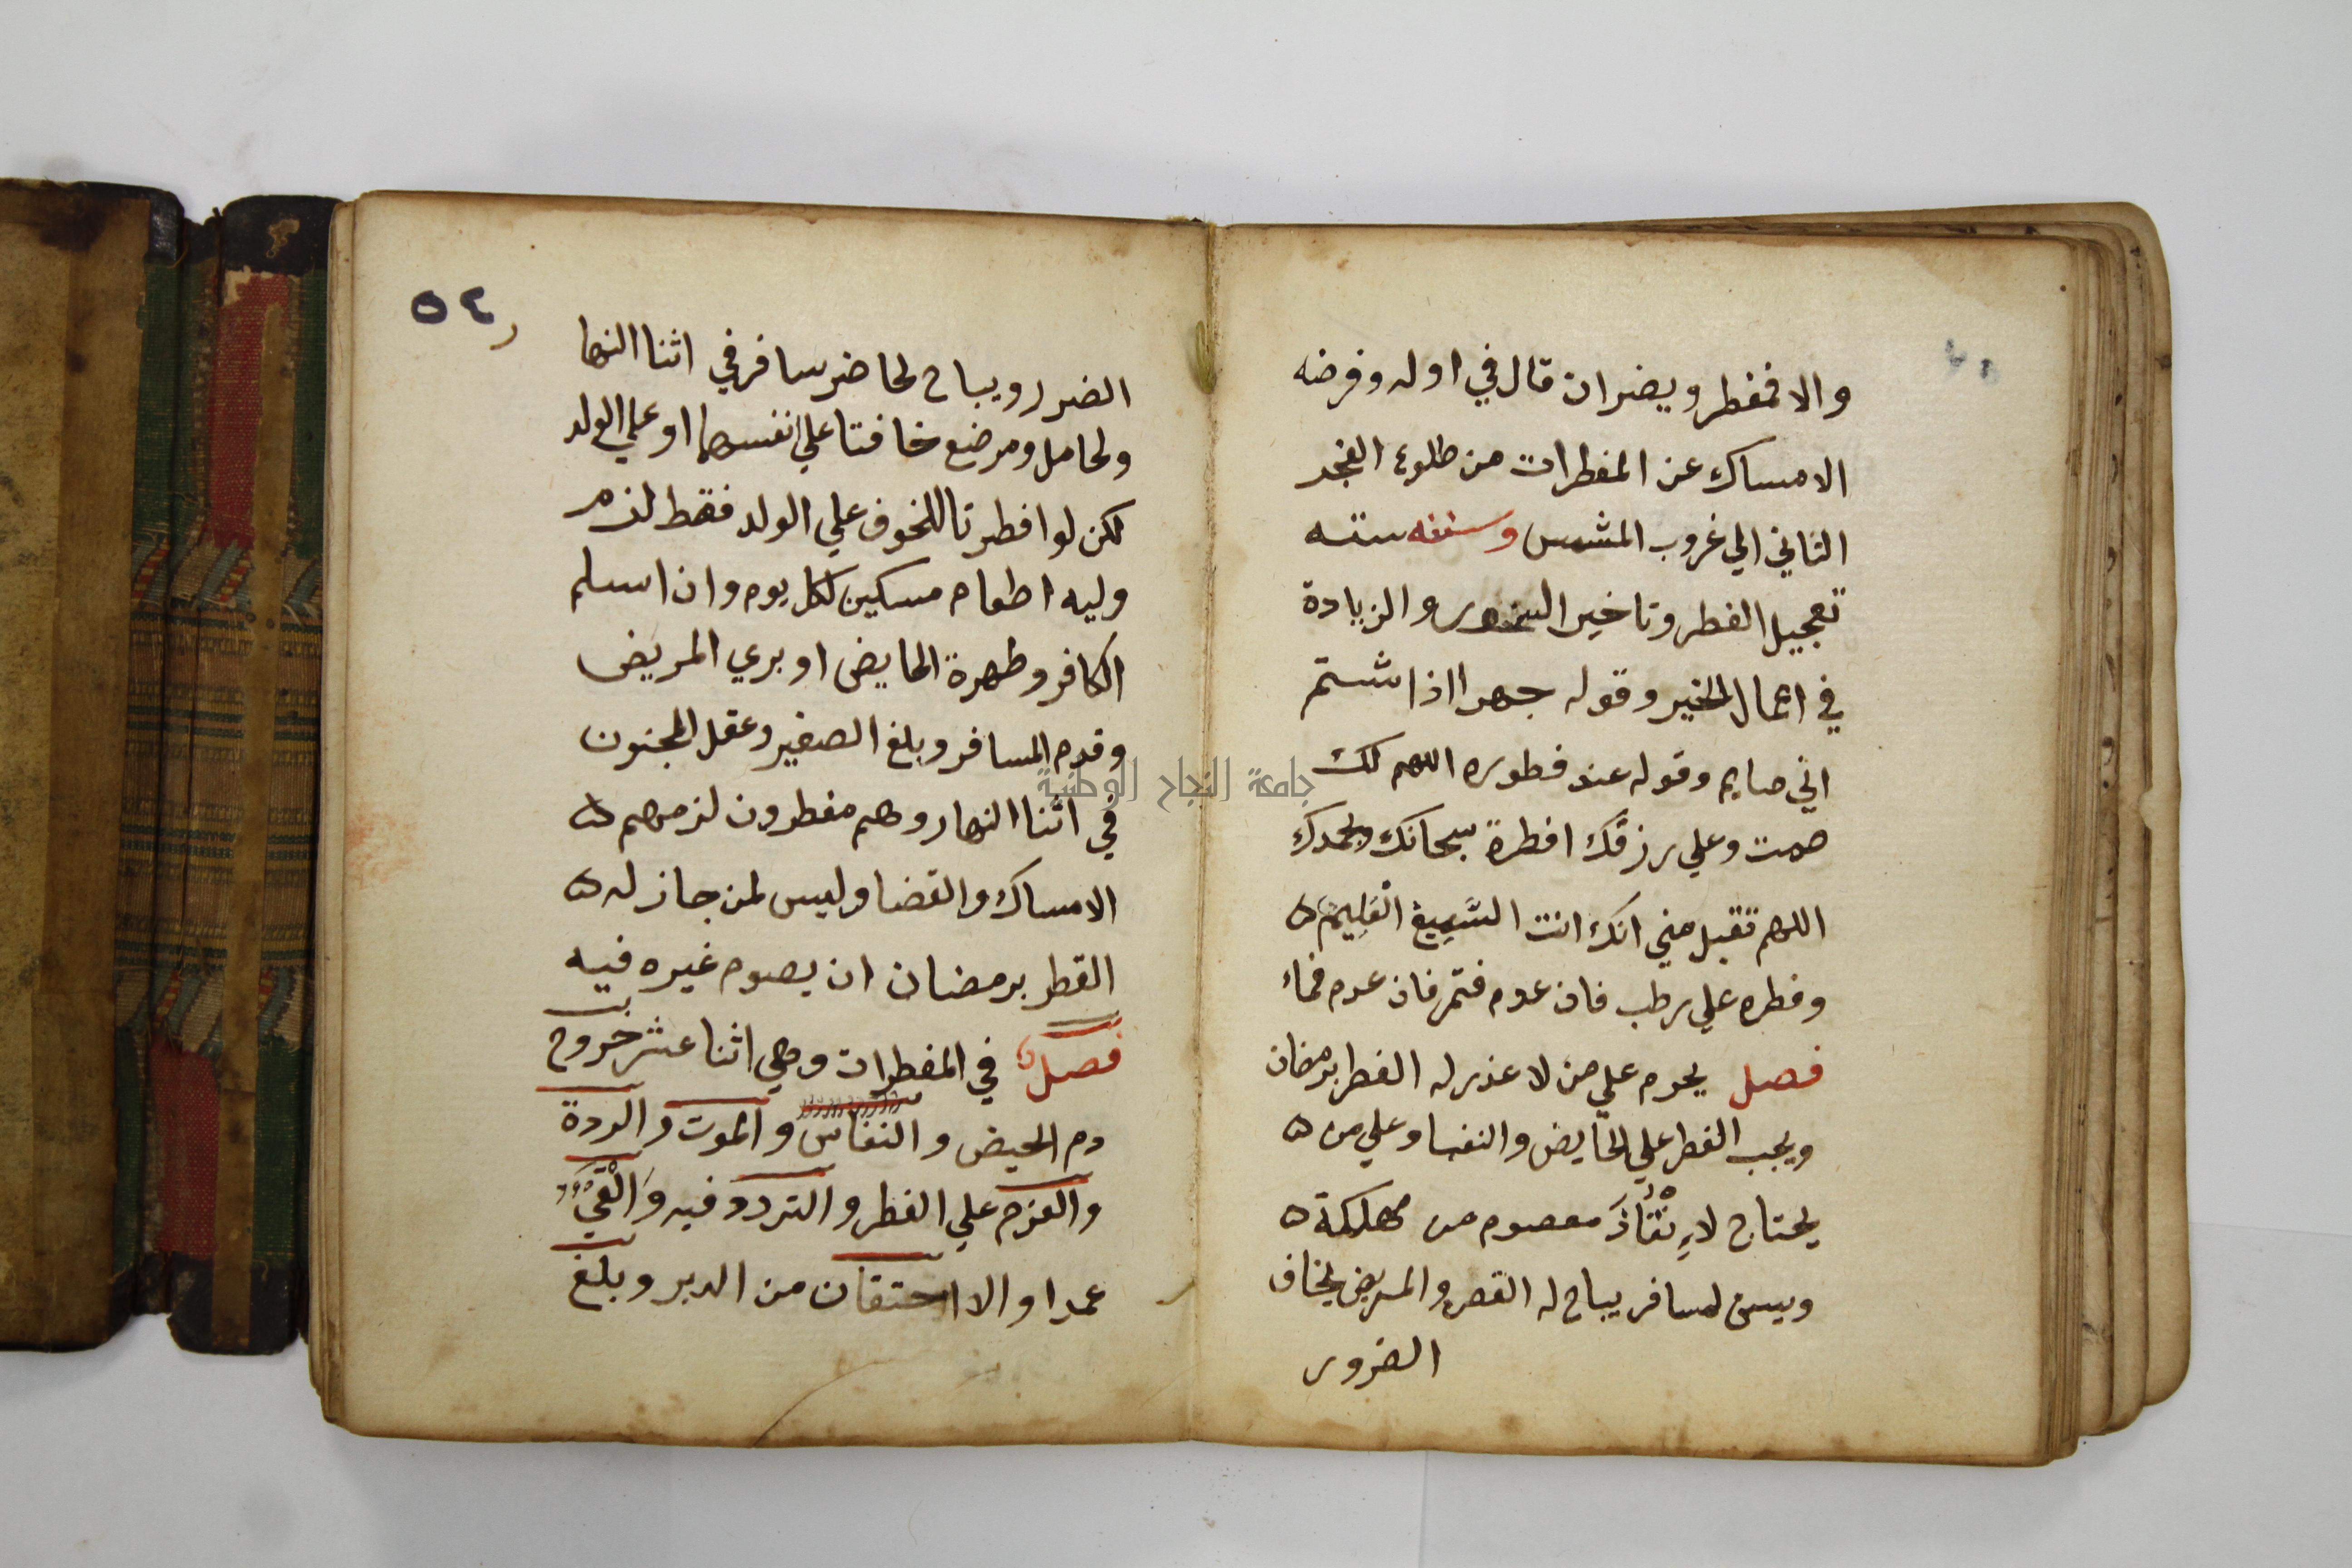 والا فمفطر ويضر ان قال في اوله وفرضه
الامساك عن المفطرات من طلوع الفجر
الثاني الي غروب الشمس وسننه ستة
تعجيل الفطر وتاخير السحور والزيادة
في اعمال الخير وقوله جهرا اذا شتم
اني صايم وقوله عند فطوره اللهم لك
صمت وعلي رزقك افطرة سبحانك وبحمدك
اللهم تقبل مني انك انت السَّمِيعُ الْعَلِيمُ ه
وفطره علي رطب فان عدم فتمر فان عدم فماء
فصل يحرم علي من لا عذر له الفطر برمضان
ويجب الفطر علي الحايض والنفسا وعلي من ه
يحتاج لاِنْقَاذَ معصوم من مهلكة ه
ويسن لمسافر يباح له القصر والمريض يخاف
الضرور
٥٤
الضرر ويباح لحاضر سافر في اثنا النهار
ولحامل ومرضع خافتا علي انفسهما او علي الولد
لكن لو افطرتا للخوف علي الولد فقط لزم
وليه اطعام مسكين لكل يوم وان اسلم
الكافر وطهرة الحايض او بري المريض
وقدم المسافر وبلغ الصغير وعقل المجنون
في اثنا النهار وهم مفطرون لزمهم ه
الامساك والقضا وليس لمن جاز له ه
الفطر برمضان ان يصوم غيره فيه
فصل في المفطرات وهي اثنا عشر خروج
دم الحيض والنفاس والموت والردة
والعزم علي الفطر والتردد فيه وَالْقَيْ
عمدا والاحتقان من الدبر وبلغ
جامعة النجاح الوطنية